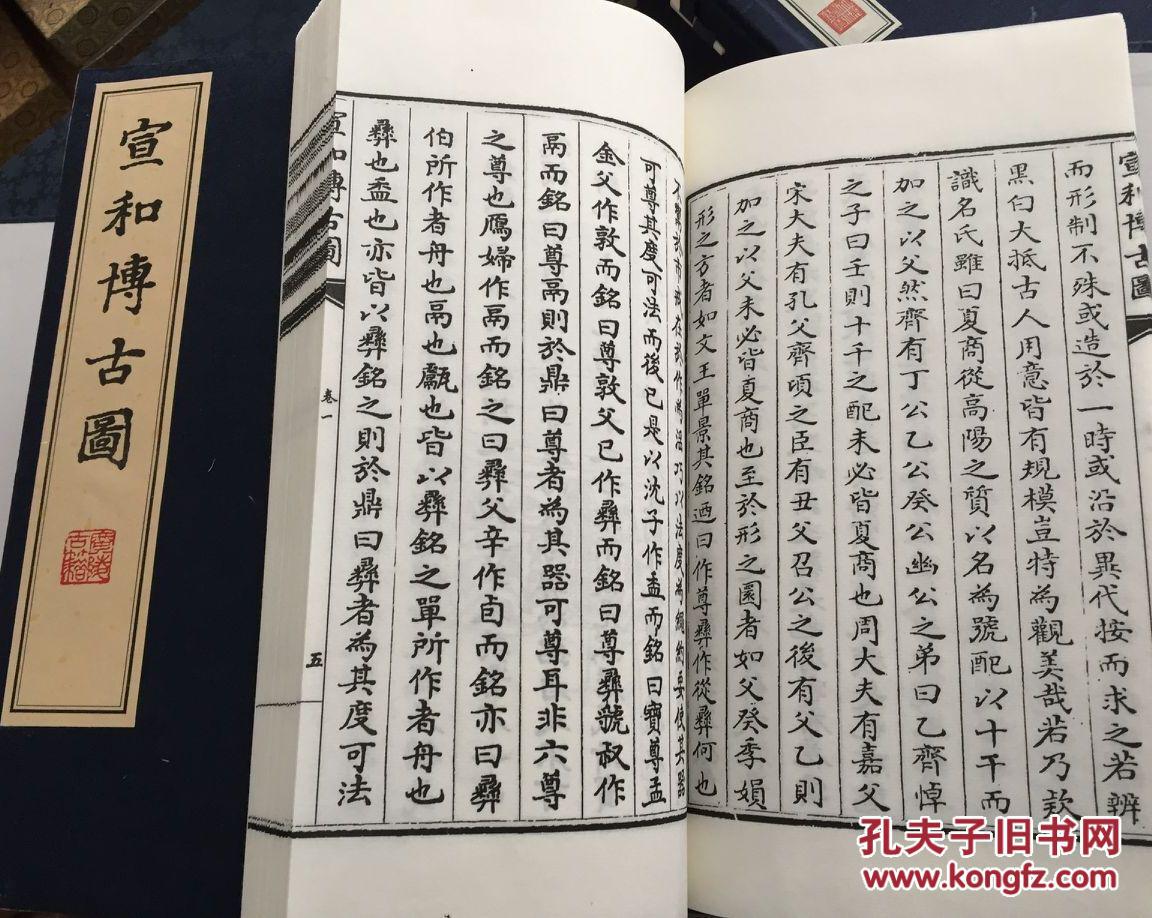 宣和博古圖
廣陵古籍
宣和博古圖
而形制不殊或造於一時或沿於異代按而求之若辨
黑白大抵古人用意皆有規模豈特為觀美哉若乃款
識名氏雖曰夏商從高陽之質以名為號配以十干而
加之以父然齊有丁公乙公癸公幽公之弟曰乙齊悼
之子曰壬則十干之配未必皆夏商也周大夫有嘉父
宋大夫有孔父齊頃之臣有丑父召公之後有父乙則
加之以父未必皆夏商也至於形之圜者如父癸季娟
形之方者如文王單景其銘迺曰作尊彝作從彝何也
法度為繩約要使其器
可尊其度可法而後已是以沈子作盉而銘曰寶尊盉
金父作敦而銘曰尊敦父已作彝而銘曰尊彝虢叔作
鬲而銘曰尊鬲則於鼎曰尊者為其器可尊耳非六尊
之尊也鴈婦作鬲而銘之曰彝父辛作卣而銘亦曰彝
伯所作者舟也鬲也甗也皆以彝銘之單所作者舟也
彝也盉也亦皆以彝銘之則於鼎曰彝者為其度可法
宣和博古圖
卷一
五
孔夫子旧书网
www.kongfz.com